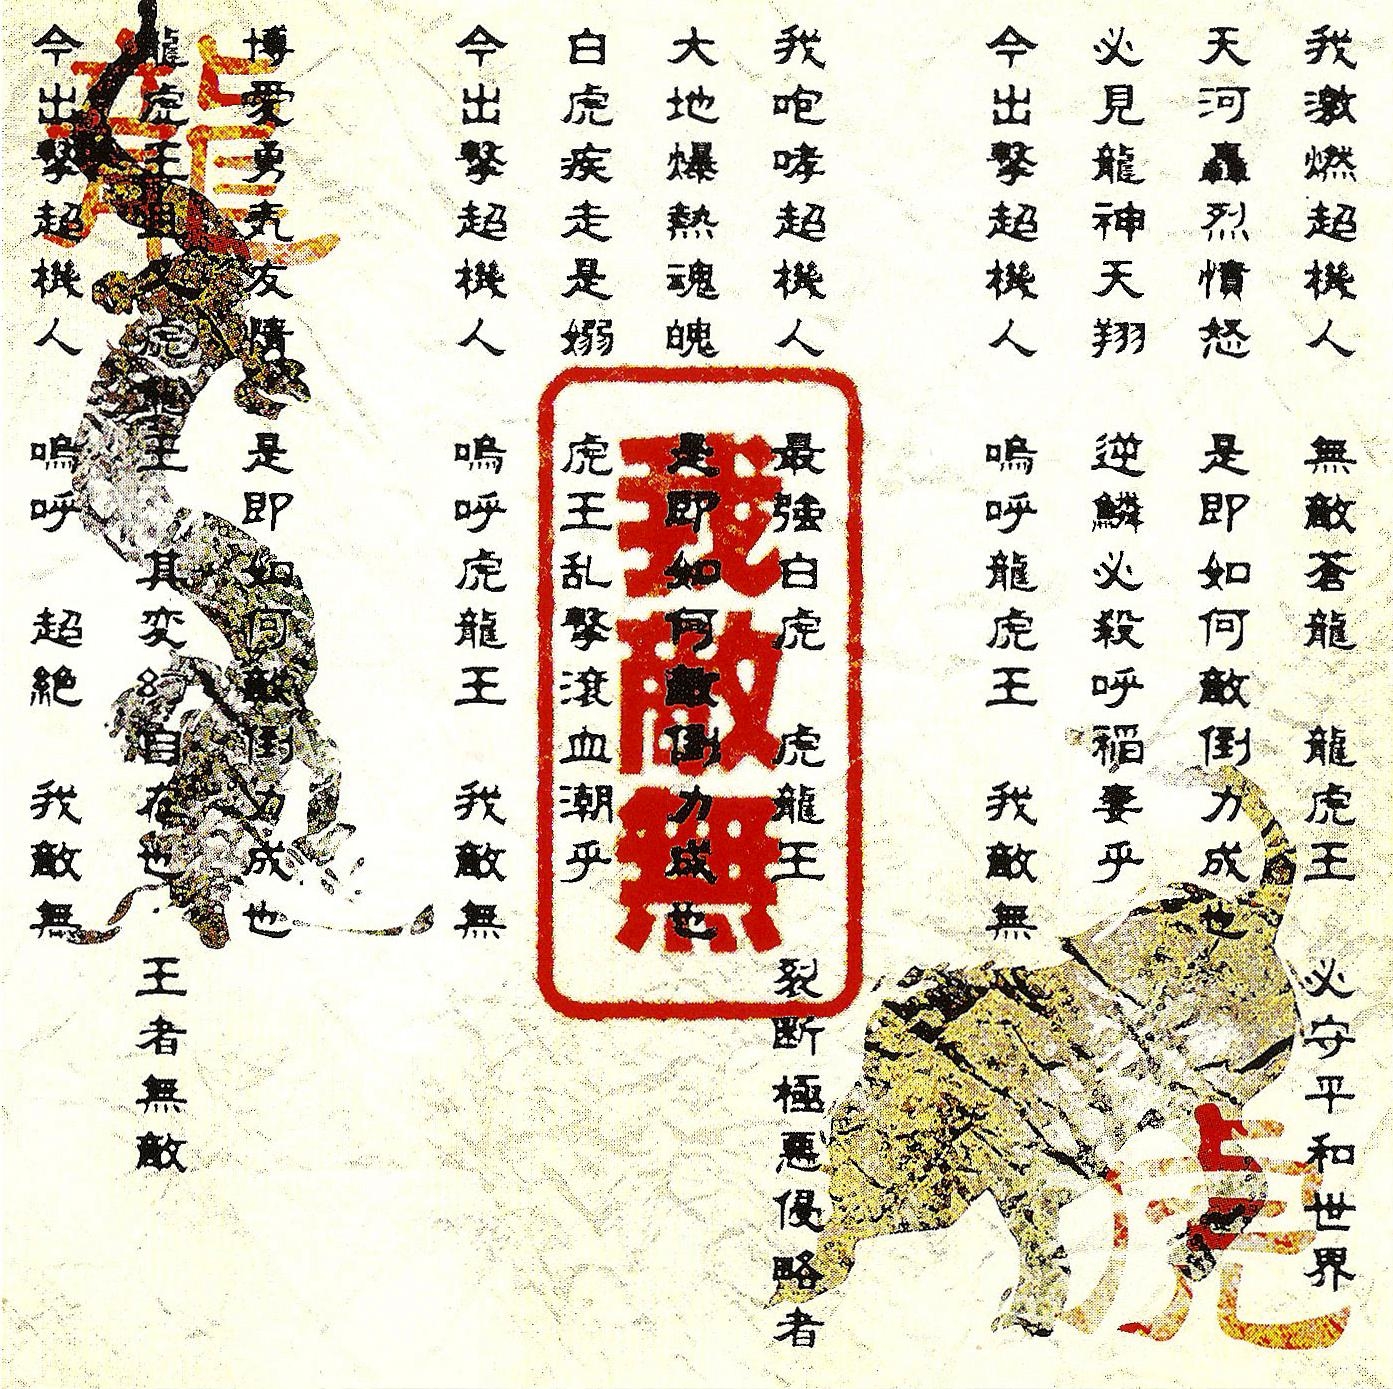 我激燃超機人 無敵蒼龍 龍虎王 必守平和世界
天河轟烈憤怒 是即如何敵倒力成也
必見龍神天翔 逆鱗必殺呼稲妻乎
今出撃超機人 嗚呼龍虎王 我敵無
我咆哮超機人 最強白虎 虎龍王 裂断極悪侵略者
大地爆熱魂魄 是即如何敵倒力成也
白虎疾走是嫋 虎王乱撃滾血潮乎
今出撃超機人 嗚呼虎龍王 我敵無
博愛勇気友情 是即如何敵倒力成也
龍虎王且又虎龍王 其変幻自在也 王者無敵
今出撃超機人 嗚呼 超絶 我敵無
我敵無
龍
虎